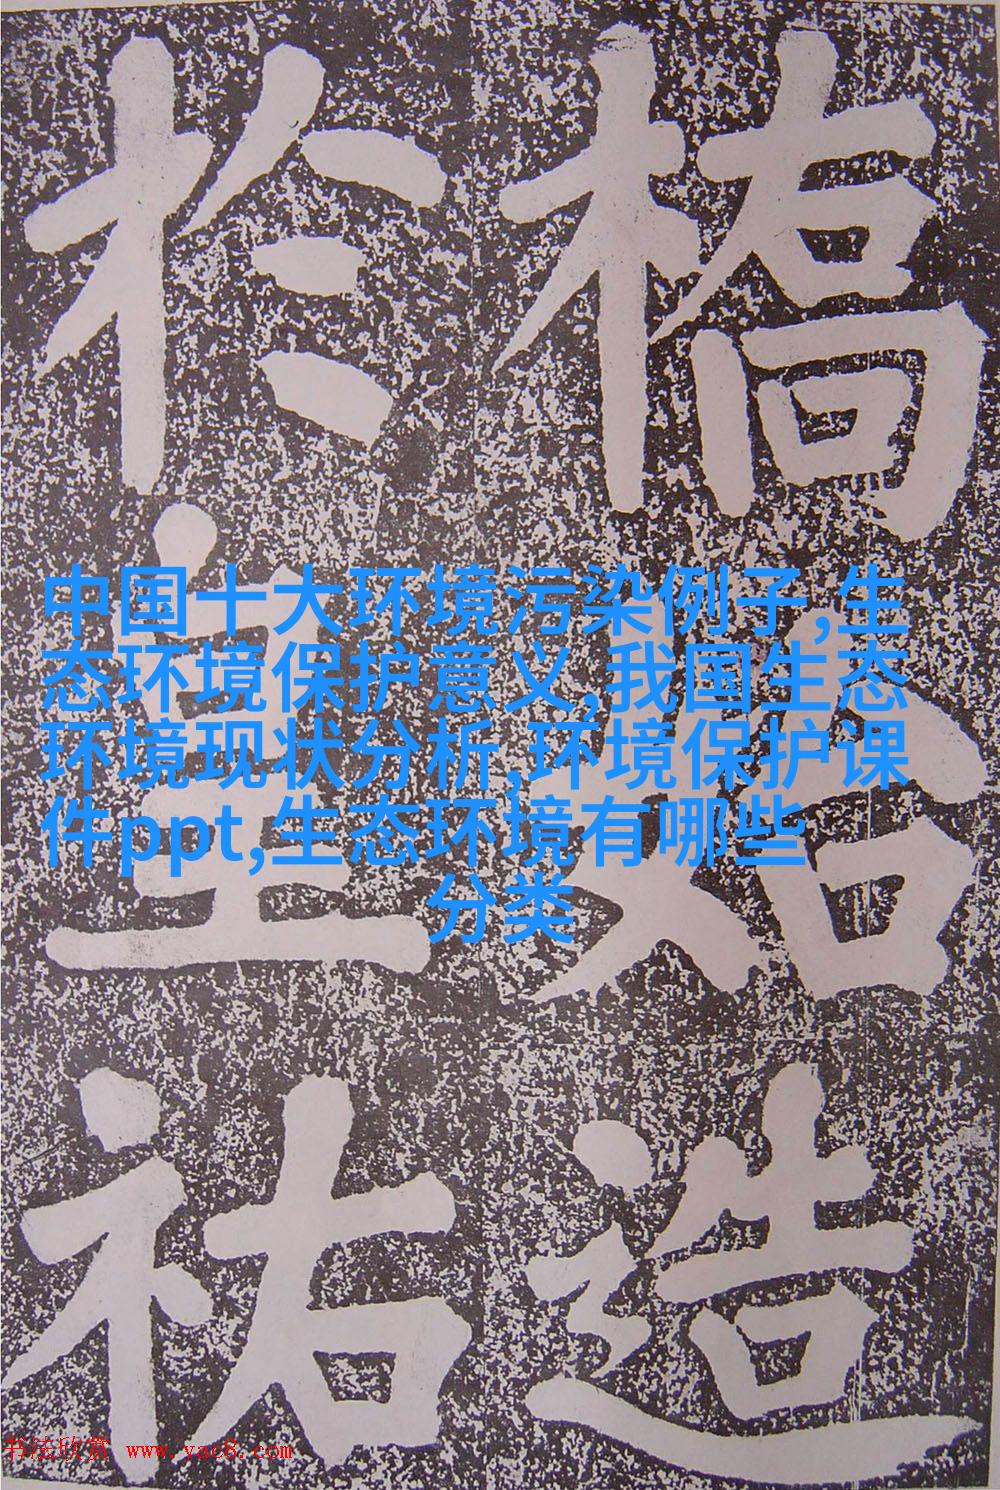 橋始造
於皇祐
中国十大环境污染例子,生
态环境保护意义,我国生态
环境现状分析,环境保护课
件ppt,生态环境有哪些
分类
书法欣赏 www.yac8.com